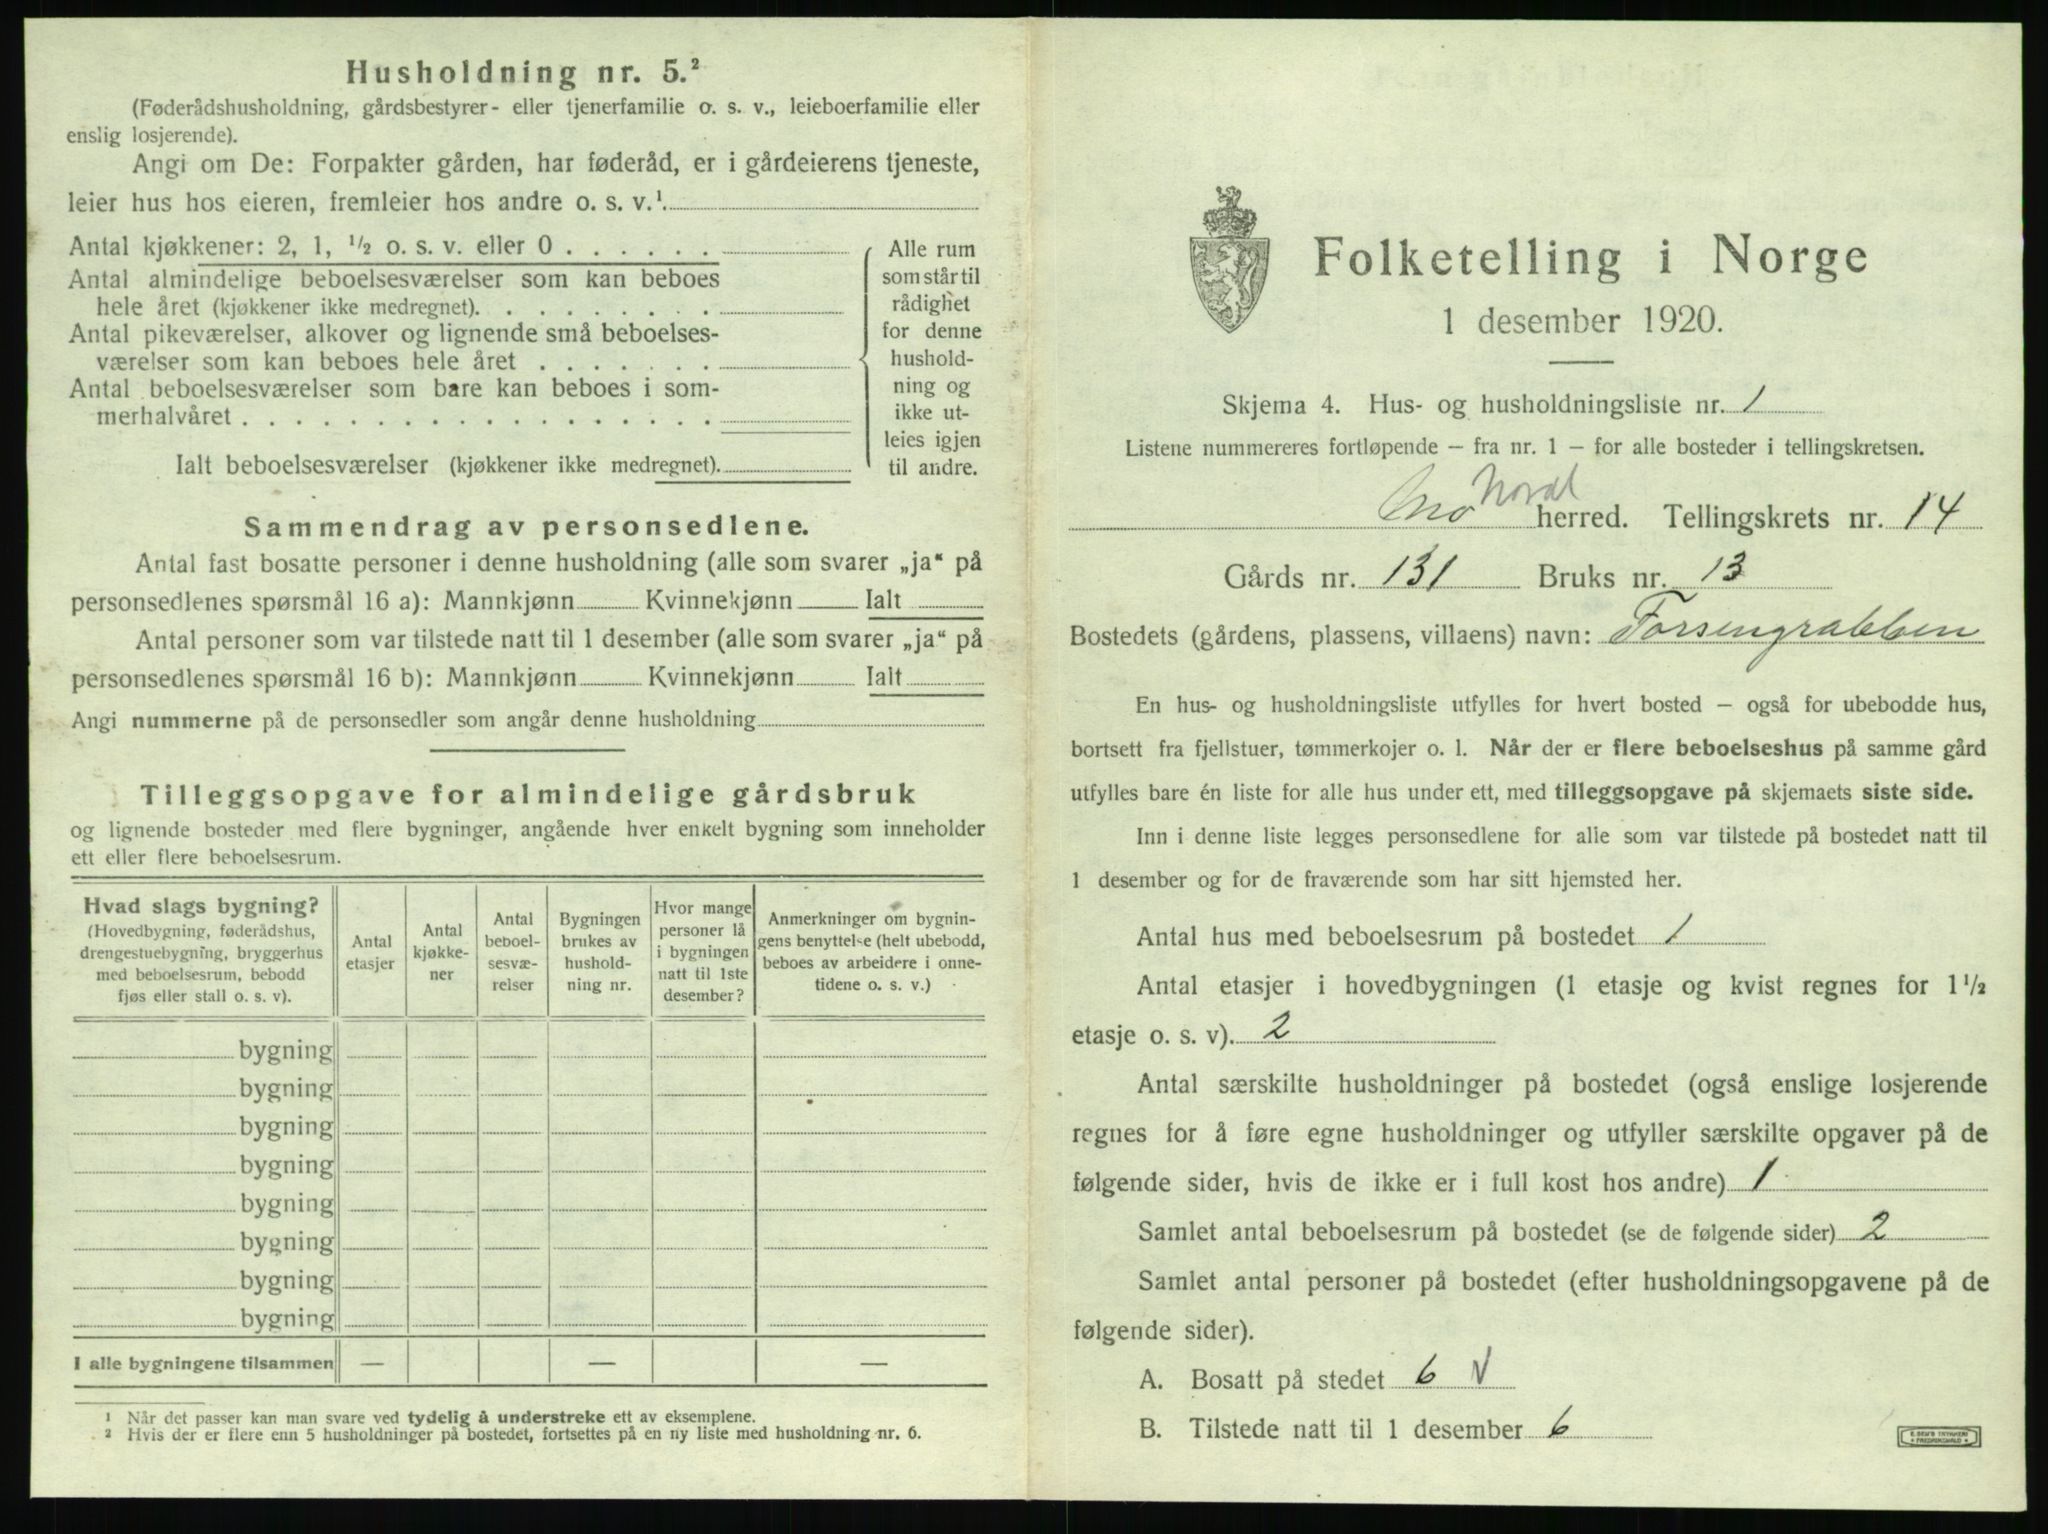 Husholdning nr. 5.²
(Føderådshusholdning, gårdsbestyrer- eller tjenerfamilie o. s. v., leieboerfamilie eller
enslig losjerende).
Angi om De: Forpakter gården, har føderåd, er i gårdeierens tjeneste,
leier hus hos eieren, fremleier hos andre o. s. v.¹.
Antal kjøkkener: 2, 1, ½ o. s. v. eller 0 . . . . . .
Antal almindelige beboelsesværelser som kan beboes
hele året (kjøkkener ikke medregnet). . . . . . . . .
Antal pikeværelser, alkover og lignende små beboelses-
værelser som kan beboes hele året . . . . . . .
Antal beboelsesværelser som bare kan beboes i som-
merhalvåret . . . . . . . . . . . . . . . . . .
Ialt beboelsesværelser (kjøkkener ikke medregnet).
Alle rum
som står til
rådighet
for denne
hushold-
ning og
ikke ut-
leies igjen
til andre.
Sammendrag av personsedlene.
Antal fast bosatte personer i denne husholdning (alle som svarer „ja“ på
personsedlenes spørsmål 16 a): Mannkjønn Kvinnekjønn Ialt
Antal personer som var tilstede natt til 1 desember (alle som svarer „ja“ på
personsedlenes spørsmål 16 b): Mannkjønn Kvinnekjønn Ialt
Angi nummerne på de personsedler som angår denne husholdning
Tilleggsopgave for almindelige gårdsbruk
og lignende bosteder med flere bygninger, angående hver enkelt bygning som inneholder
ett eller flere beboelsesrum.
Hvad slags bygning?
(Hovedbygning, føderådshus,
drengestuebygning, bryggerhus
med beboelsesrum, bebodd
fjøs eller stall o. s. v).
Antal
etasjer
Antal
kjøkke-
ner
Antal
beboel-
sesvæ-
relser
Bygningen
brukes av
hushold-
ning nr.
Hvor mange
personer lå
i bygningen
natt til 1ste
desember?
Anmerkninger om bygnin-
gens benyttelse (helt ubebodd,
beboes av arbeidere i onne-
tidene o. s. v.)
bygning
bygning
bygning
bygning
bygning
bygning
bygning
bygning
I alle bygningene tilsammen — — —
¹ Når det passer kan man svare ved tydelig å understreke ett av eksemplene.
² Hvis der er flere enn 5 husholdninger på bostedet, fortsettes på en ny liste med husholdning nr. 6.
Folketelling i Norge
1 desember 1920.
Skjema 4. Hus- og husholdningsliste nr. 1
Listene nummereres fortløpende – fra nr. 1 – for alle bosteder i tellingskretsen.
Nord
Mo herred. Tellingskrets nr. 14
Gårds nr. 131 Bruks nr. 13
Bostedets (gårdens, plassens, villaens) navn: Forsengrabben
En hus- og husholdningsliste utfylles for hvert bosted – også for ubebodde hus,
bortsett fra fjellstuer, tømmerkojer o. l. Når der er flere beboelseshus på samme gård
utfylles bare én liste for alle hus under ett, med tilleggsopgave på skjemaets siste side.
Inn i denne liste legges personsedlene for alle som var tilstede på bostedet natt til
1 desember og for de fraværende som har sitt hjemsted her.
Antal hus med beboelsesrum på bostedet 1
Antal etasjer i hovedbygningen (1 etasje og kvist regnes for 1½
etasje o. s. v). 2
Antal særskilte husholdninger på bostedet (også enslige losjerende
regnes for å føre egne husholdninger og utfyller særskilte opgaver på de
følgende sider, hvis de ikke er i full kost hos andre) 1
Samlet antal beboelsesrum på bostedet (se de følgende sider) 2
Samlet antal personer på bostedet (efter husholdningsopgavene på de
følgende sider).
A. Bosatt på stedet 6 V
B. Tilstede natt til 1 desember 6